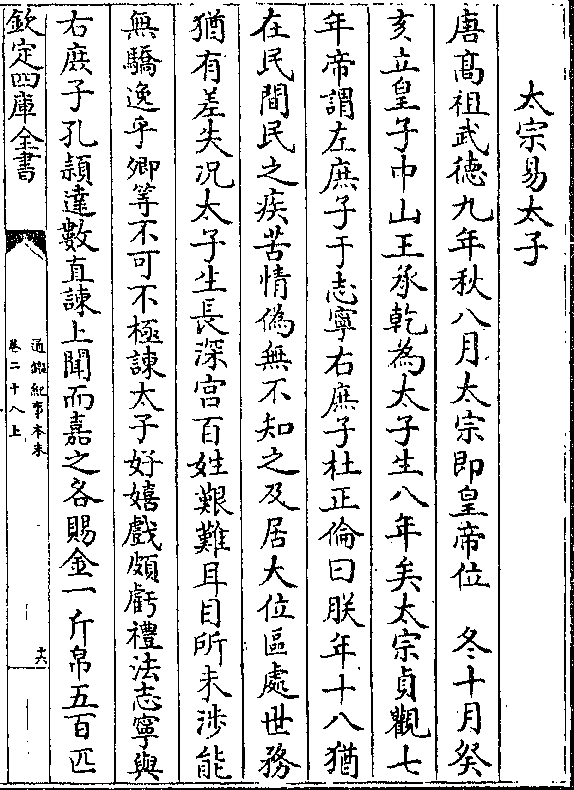 太宗易太子
唐髙祖武徳九年秋八月太宗即皇帝位　冬十月癸
亥立皇子中山王承乾為太子生八年矣太宗貞觀七
年帝謂左庶子于志寧右庶子杜正倫曰朕年十八猶
在民間民之疾苦情偽無不知之及居大位區處世務
猶有差失况太子生長深宫百姓艱難耳目所未涉能
無驕逸乎卿等不可不極諫太子好嬉戲頗虧禮法志寧與
右庶子孔頴達數直諫上聞而嘉之各賜金一斤帛五百匹
欽定四庫全書
通鑑紀事本末
卷二十八上
十六